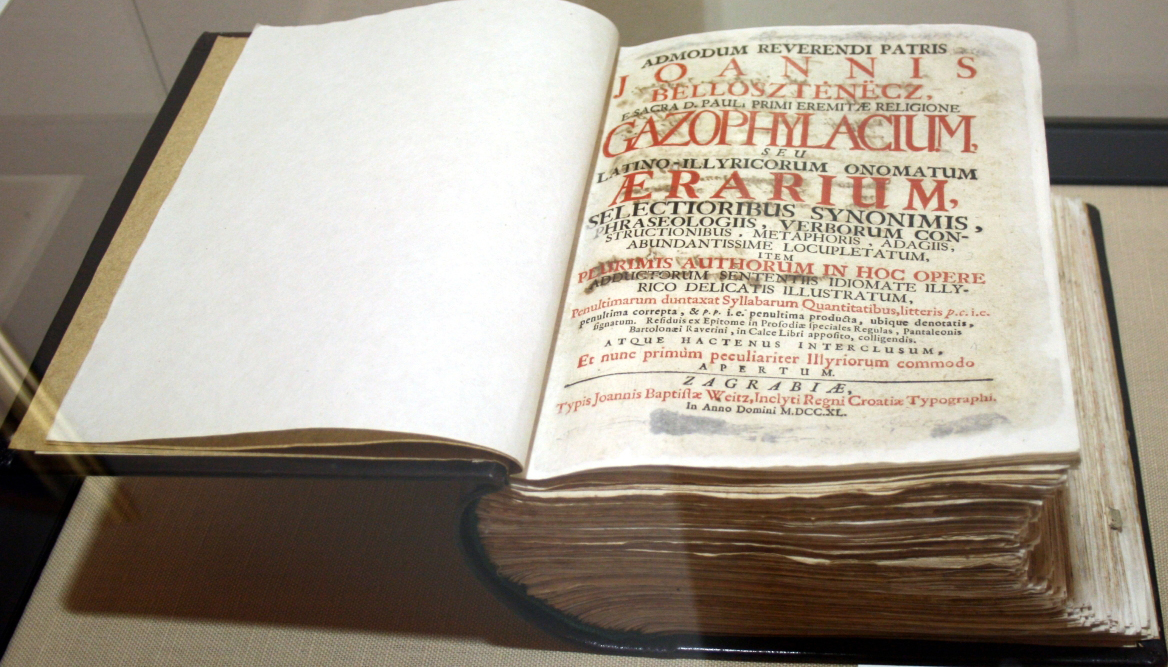 ADMODUM REVERENDI PATRIS
JOANNIS
BELLOSZTENËCZ,
E SACRA D. PAULI PRIMI EREMITÆ RELIGIONE
GAZOPHYLACIUM,
SEU
LATINO-ILLYRICORUM ONOMATUM
ÆRARIUM,
SELECTIORIBUS SYNONIMIS,
PHRASEOLOGIIS, VERBORUM CON-
STRUCTIONIBUS, METAPHORIS, ADAGIIS,
ABUNDANTISSIME LOCUPLETATUM,
ITEM
PLURIMIS AUTHORUM IN HOC OPERE
ADDUCTORUM SENTENTIIS IDIOMATE ILLY-
RICO DELICATIS ILLUSTRATUM,
Penultimarum duntaxat Syllabarum Quantitatibus, litteris p.c. i.e.
penultima correpta, & p.p. i.e. penultima producta, ubique denotatis,
ſignatum. Reſiduis ex Epitome in Proſodiæ ſpeciales Regulas, Pantaleonis
Bartolonæi Raverini, in Calce Libri appoſito, colligendis.
ATQUE HACTENUS INTERCLUSUM,
Et nunc primùm peculiariter Illyriorum commodo
APERTUM.
ZAGRABIÆ,
Typis Joannis Baptiſtæ Weitz, Inclyti Regni Croatiæ Typographi,
In Anno Domini M.DCC.XL.